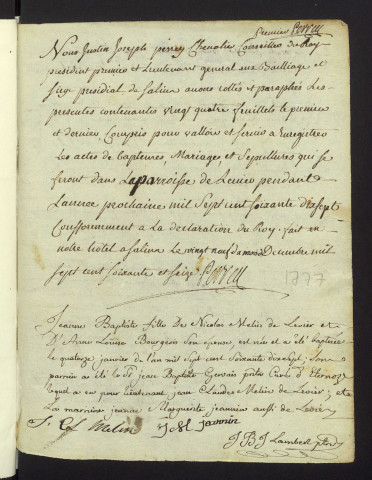 Premier Perrey
Nous Justin Joseph Perrey Chevalier Conseiller du Roy
president premier et Lieutenant general aux Bailliage et
siege presidial de Salins avons cottés et paraphés les
presentes contenantes vingt quatre feuillets le premier
et dernier Compris pour valloir et servir a Enregitrer
Les actes de Baptemes, Mariages, et Sepultures qui se
feront dans La parroisse de Levier pendant
L'annee prochaine mil Sept cent soixante dix sept
Conformement a la declaration du Roy, fait en
notre hôtel a Salins Le vingt neuf Decembre mil
sept cent soixante et seize Perrey
1777
Jeanne Baptiste fille De Nicolas Melin de Levier et
D' Ann Louise Bourgeois son epouse, est née et a été baptisée
Le quatorze janvier de l'an mil sept cent soixante dix sept; son
parrain a été le Sr jean Baptiste Gervais Curé d'Eternoz
lequel a eu pour lieutenant jean Claude Melin de Levier; et
La marraine jeanne Marguerite jeannin aussi de Levier
J. Cl Melin J Bt Jeannin
J B J Lambert ptre